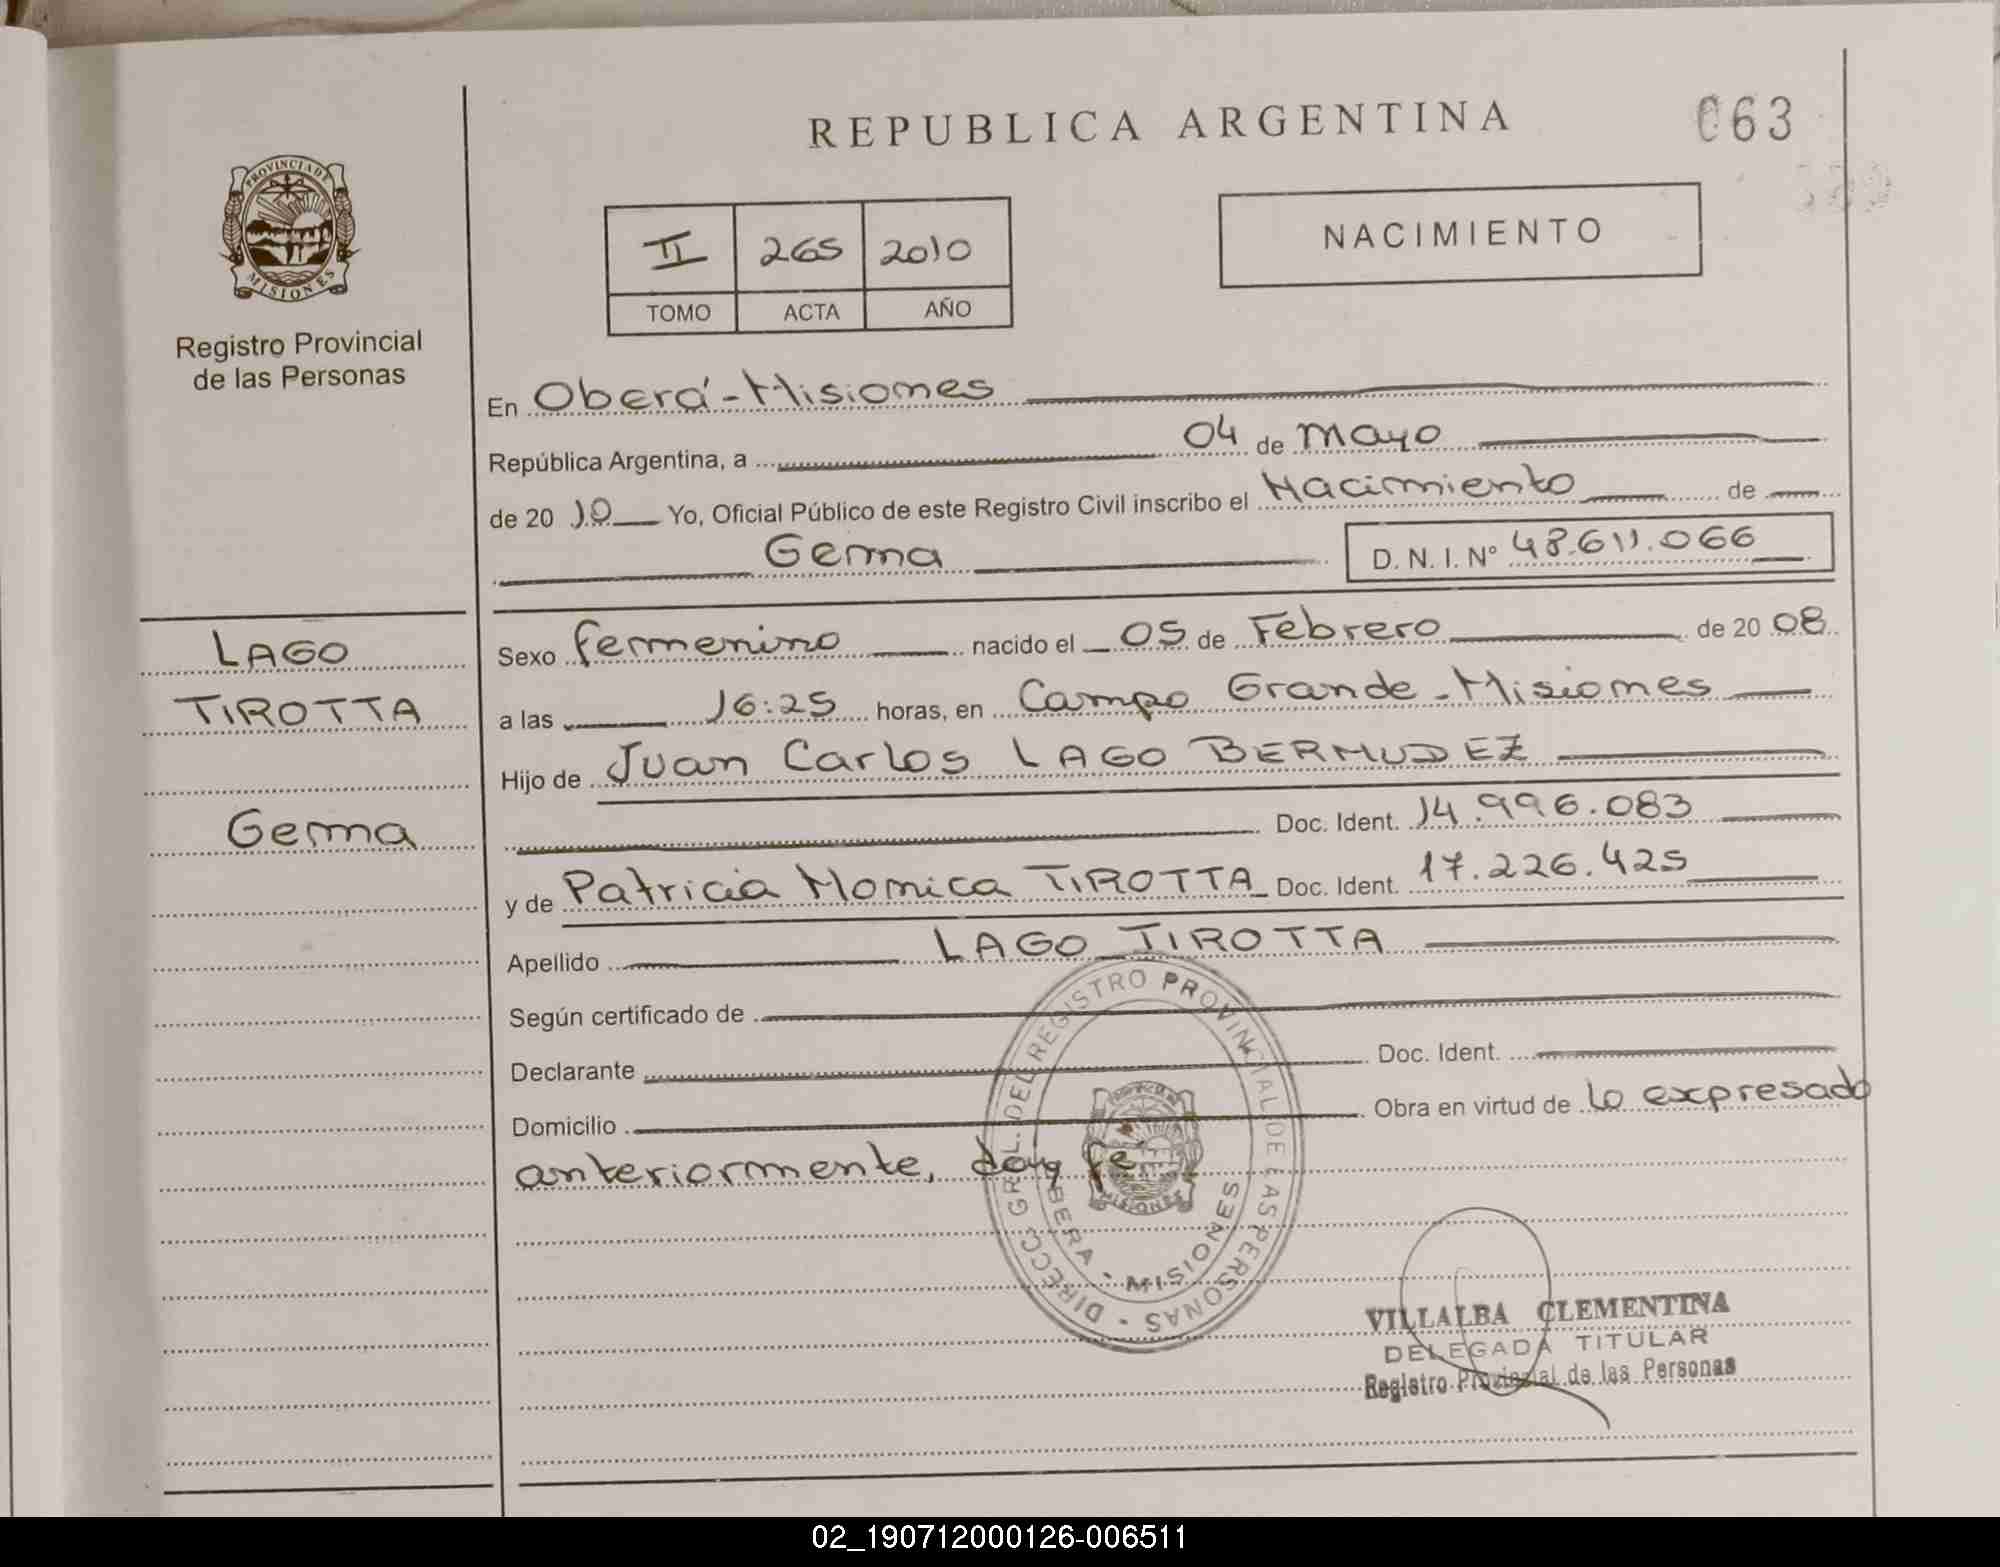 REPUBLICA ARGENTINA
063
PROVINCIA DE MISIONES
Registro Provincial
de las Personas
II 265 2010
TOMO ACTA AÑO
NACIMIENTO
En Oberá-Misiones
República Argentina, a 04 de mayo
de 20 10 Yo, Oficial Público de este Registro Civil inscribo el Nacimiento de
Gemma D. N. I. Nº 48.611.066
LAGO
TIROTTA
Gemma
Sexo femenino nacido el 05 de Febrero de 20 08
a las 16:25 horas, en Campo Grande-Misiones
Hijo de Juan Carlos LAGO BERMUDEZ
Doc. Ident. 14.996.083
y de Patricia Monica TIROTTA Doc. Ident. 17.226.425
Apellido LAGO TIROTTA
Según certificado de
Declarante Doc. Ident.
Domicilio Obra en virtud de lo expresado
anteriormente, doy fé
DIRECC. GRAL. DEL REGISTRO PROVINCIAL DE LAS PERSONAS
OBERA - MISIONES
MISIONES
VILLALBA CLEMENTINA
DELEGADA TITULAR
Registro Provincial de las Personas
02_190712000126-006511